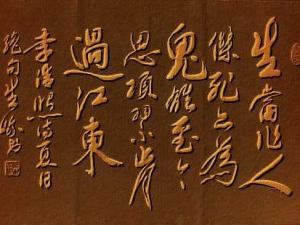 生當作人
傑死亦為
鬼雄至今
思項羽不肯
過江東
李清照夏日
絕句